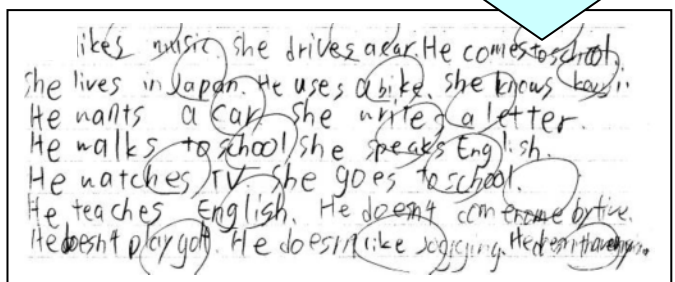 likes music. she drives a car. He comes to school.
she lives in Japan. He uses a bike. she knows
He wants a car. she writes a letter.
He walks to school. she speaks English.
He watches TV. she goes to school.
He teaches English. He doesn't come by five.
He doesn't play golf. He doesn like jogging. He doesn't have